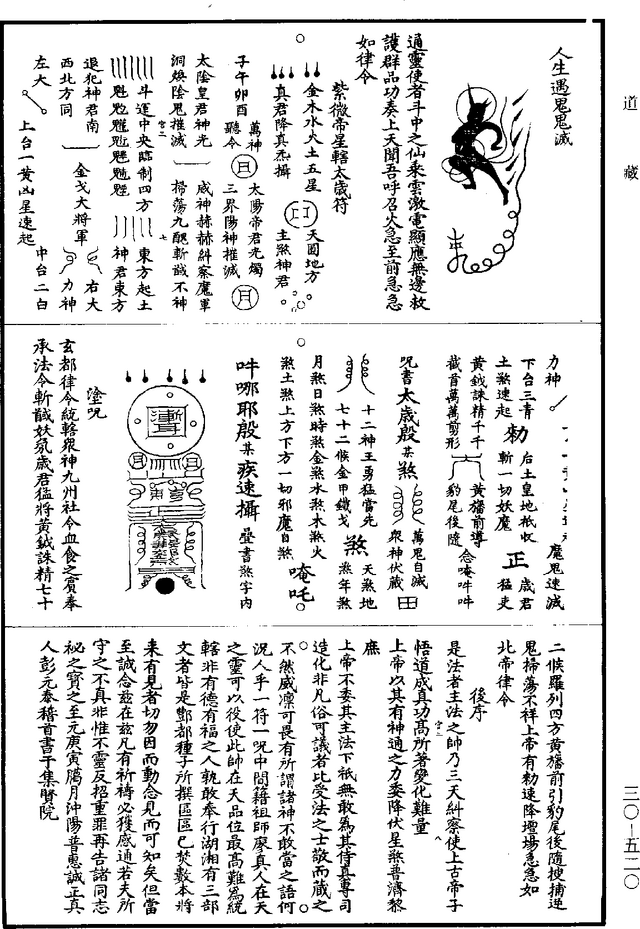 道藏
三〇—五二〇
人生遇鬼鬼滅
通靈使者斗中之仙乘雲激電顯應無邊救
護群品功奏上天聞吾呼召火急至前急急
如律令
紫微帝星轄太歲符
金木水火土五星
天圓地方
真君降真炁攝
主煞神君
子午卯酉
萬神聽令
太陽帝君光燭
三界陽神摧滅
太陰皇君神光
威神赫赫糾察魔軍
洞煥陰鬼摧滅
掃蕩九醜斬馘不神
斗運中央臨制四方
東方起土
魁𩲃
神君東方
退犯神君南
金戈大將軍
右大
西北方同
力神
左大
上台一黃凶星速起
中台二白
力神
魔鬼速滅
下台三青
后土皇地祇收
歲君
土煞速起
勑
斬一切妖魔
正
猛吏
黃鉞誅精千千
黃旛前導
念唵吽吽
截首萬萬剪形
豹尾後隨
咒書太歲殷某煞
萬鬼自滅
眾神伏藏
十二神王勇猛當先
天煞地
七十二候金甲鐵戈
煞
煞年煞
月煞日煞時煞金煞水煞木煞火
煞土煞上方下方一切邪魔自煞
唵吒
吽哪耶殷某疾速攝
疊書煞字內
塗咒
玄都律令統轄眾神九州社令血食之賓奉
承法令斬馘妖氛歲君猛將黃鉞誅精七十
二候羅列四方黃旛前引豹尾後隨搜捕逆
鬼掃蕩不祥上帝有勑速降壇場急急如
北帝律令
後序
是法者主法之帥乃三天糾察使上古帝子
悟道成真功高所著變化難量
上帝以其有神通之力委降伏星煞普濟黎
庶
上帝不委其主法下祇無敢為其侍真專司
造化非凡俗可議者比受法之士敬而藏之
不然威凛可畏有所謂諸神不敢當之語何
況人乎一符一呪中間籍祖師廖真人在天
之靈可以役使此帥在天品位最高難為統
轄非有德有福之人孰敢奉行湖湘有三部
文者皆是酆都種子所撰區區已焚數本將
來有見者切勿因而動念見而可知矣但當
至誠念茲在茲凡有祈禱必獲感通若夫所
守之不真非惟不靈反招重罪再告諸同志
秘之寶之至元庚寅臈月沖陽普惠誠正真
人彭元泰稽首書于集賢院